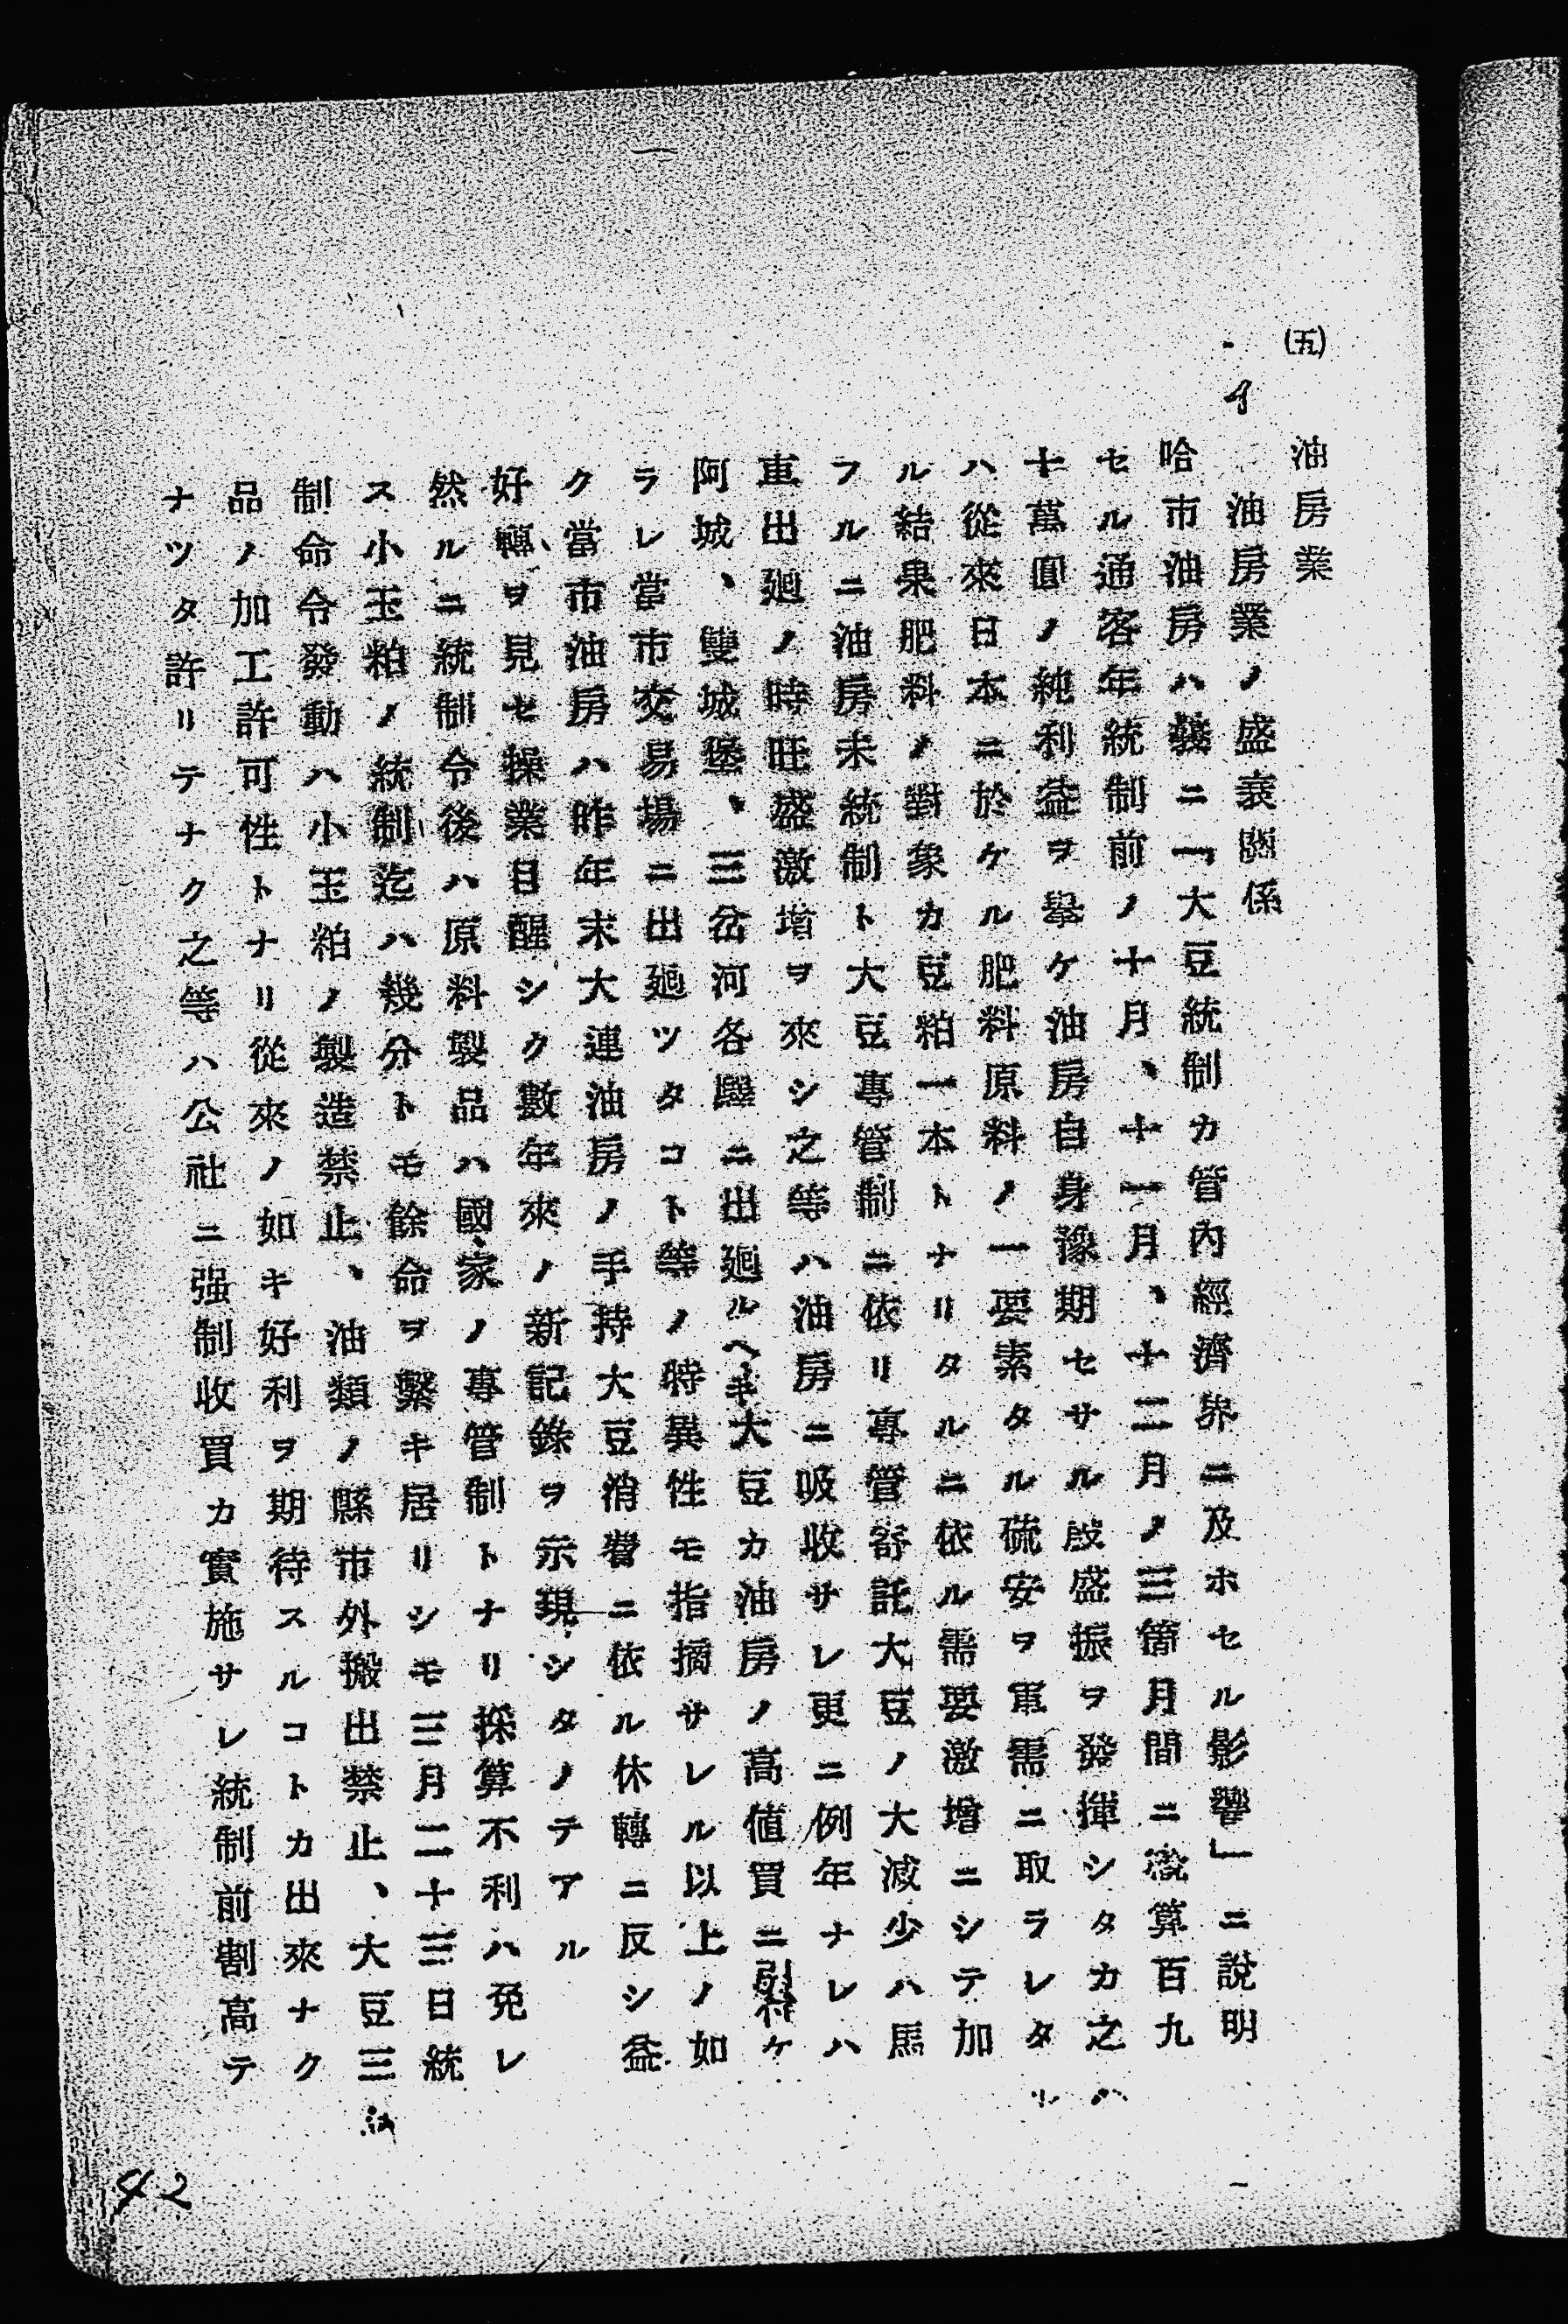 (五) 油房業
イ 油房業ノ盛衰關係
哈市油房ハ曩ニ「大豆統制カ管內經濟界ニ及ホセル影響」ニ說明
セル通客年統制前ノ十月、十一月、十二月ノ三箇月間ニ槪算百九
十萬圓ノ純利益ヲ擧ケ油房自身豫期セサル殷盛振ヲ發揮シタカ之ハ
ハ從來日本ニ於ケル肥料原料ノ一要素タル硫安ヲ軍需ニ取ラレタリ
ル結果肥料ノ對象カ豆粕一本トナリタルニ依ル需要激增ニシテ加
フルニ油房未統制ト大豆專管制ニ依リ專管寄託大豆ノ大減少ハ馬
車出廻ノ時旺盛激增ヲ來シ之等ハ油房ニ吸收サレ更ニ例年ナレハ
阿城、雙城堡、三岔河各縣ニ出廻ルヘキ大豆カ油房ノ高値買ニ引付ケ
ラレ當市交易場ニ出廻ツタコト等ノ特異性モ指摘サレル以上ノ如
ク當市油房ハ昨年末大連油房ノ手持大豆消費ニ依ル休轉ニ反シ益
好轉ヲ見セ操業目醒シク數年來ノ新記錄ヲ示現シタノテアル
然ルニ統制令後ハ原料製品ハ國家ノ專管制トナリ採算不利ハ免レ
ス小玉粕ノ統制迄ハ幾分トモ餘命ヲ繫キ居リシモ三月二十三日統
制命令發動ハ小玉粕ノ製造禁止、油類ノ縣市外搬出禁止、大豆三
品ノ加工許可性トナリ從來ノ如キ好利ヲ期待スルコトカ出來ナク
ナツタ許リテナク之等ハ公社ニ强制收買カ實施サレ統制前割高テ
42